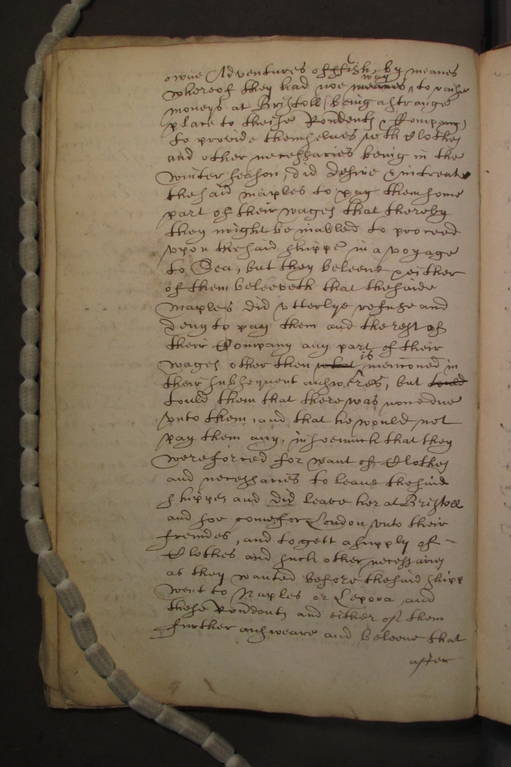 owne Adventures of ffish, by means
whereof they had noe way meanes, to raise
moneys at Bristoll (being a strange
place to these Rondents & Company)
to provide themselves with Clothes
and other necessaries being in the
winter season, did desire & intreate
the said Maples to pay them some
part of their wages that thereby
they might be inabled to proceed
upon the said shippe in a voyage
to Sea, but they beleeve & either
of them beleeveth that the saide
Maples did utterlye refuse and
deny to pay them and the rest of
their Company any part of their
wages other then what is mencioned in
their subsequent answeres, but tould
tould them that there was none due
unto them, and that he would not
pay them any, in soe much that they
were forced for want of Clothes
and necessaries to leave the said
shippe and did leave her at Bristoll
and soe come for London unto their
freindes, and to gett a supply of
Clothes and such other necessaries
as they wanted before the said shipp
went to Naples or and
these Rondents and either of them
further answeare and beleeve that
after